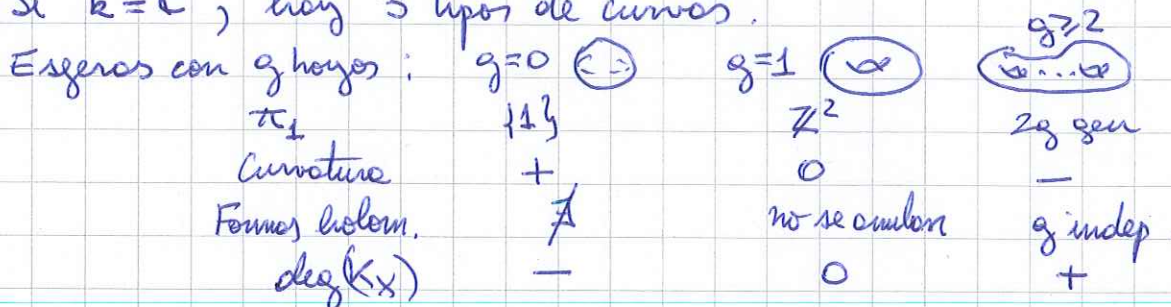 Si k=ℂ, hay 3 tipos de curvas.
Esferas con g hoyos: g=0 g=1 g≥2
π₁ {1} ℤ² 2g gen
Curvatura + 0 −
Formas holom. ∄ no se anulan g indep
deg(K_X) − 0 +